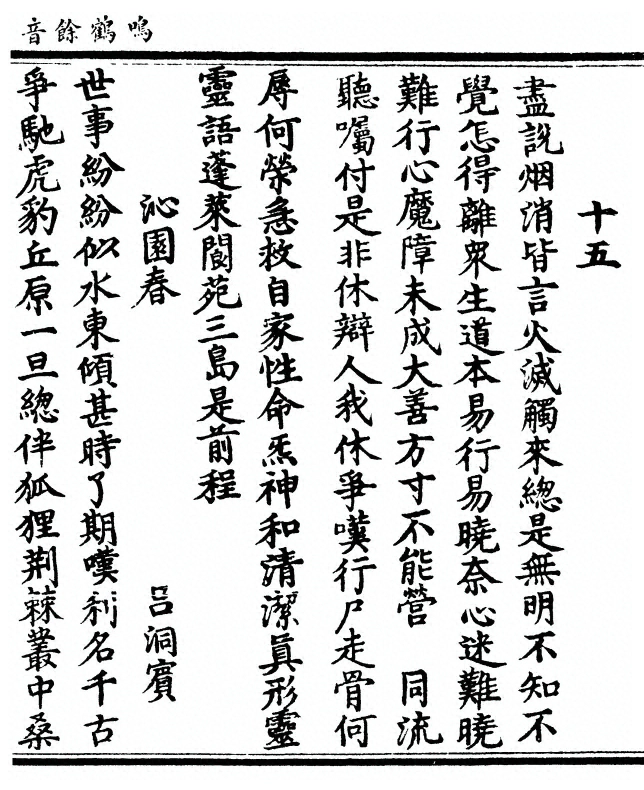 鳴鶴餘音
十五
盡說烟消皆言火滅觸來總是無明不知不
覺怎得離衆生道本易行易曉奈心迷難曉
難行心魔障未成大善方寸不能營　同流
聽囑付是非休辯人我休爭嘆行尸走骨何
辱何榮急救自家性命炁神和清潔眞形靈
靈語蓬萊閬苑三島是前程
沁園春　呂洞賓
世事紛紛似水東傾甚時了期嘆利名千古
爭馳虎豹丘原一旦總伴狐狸荆棘叢中桑